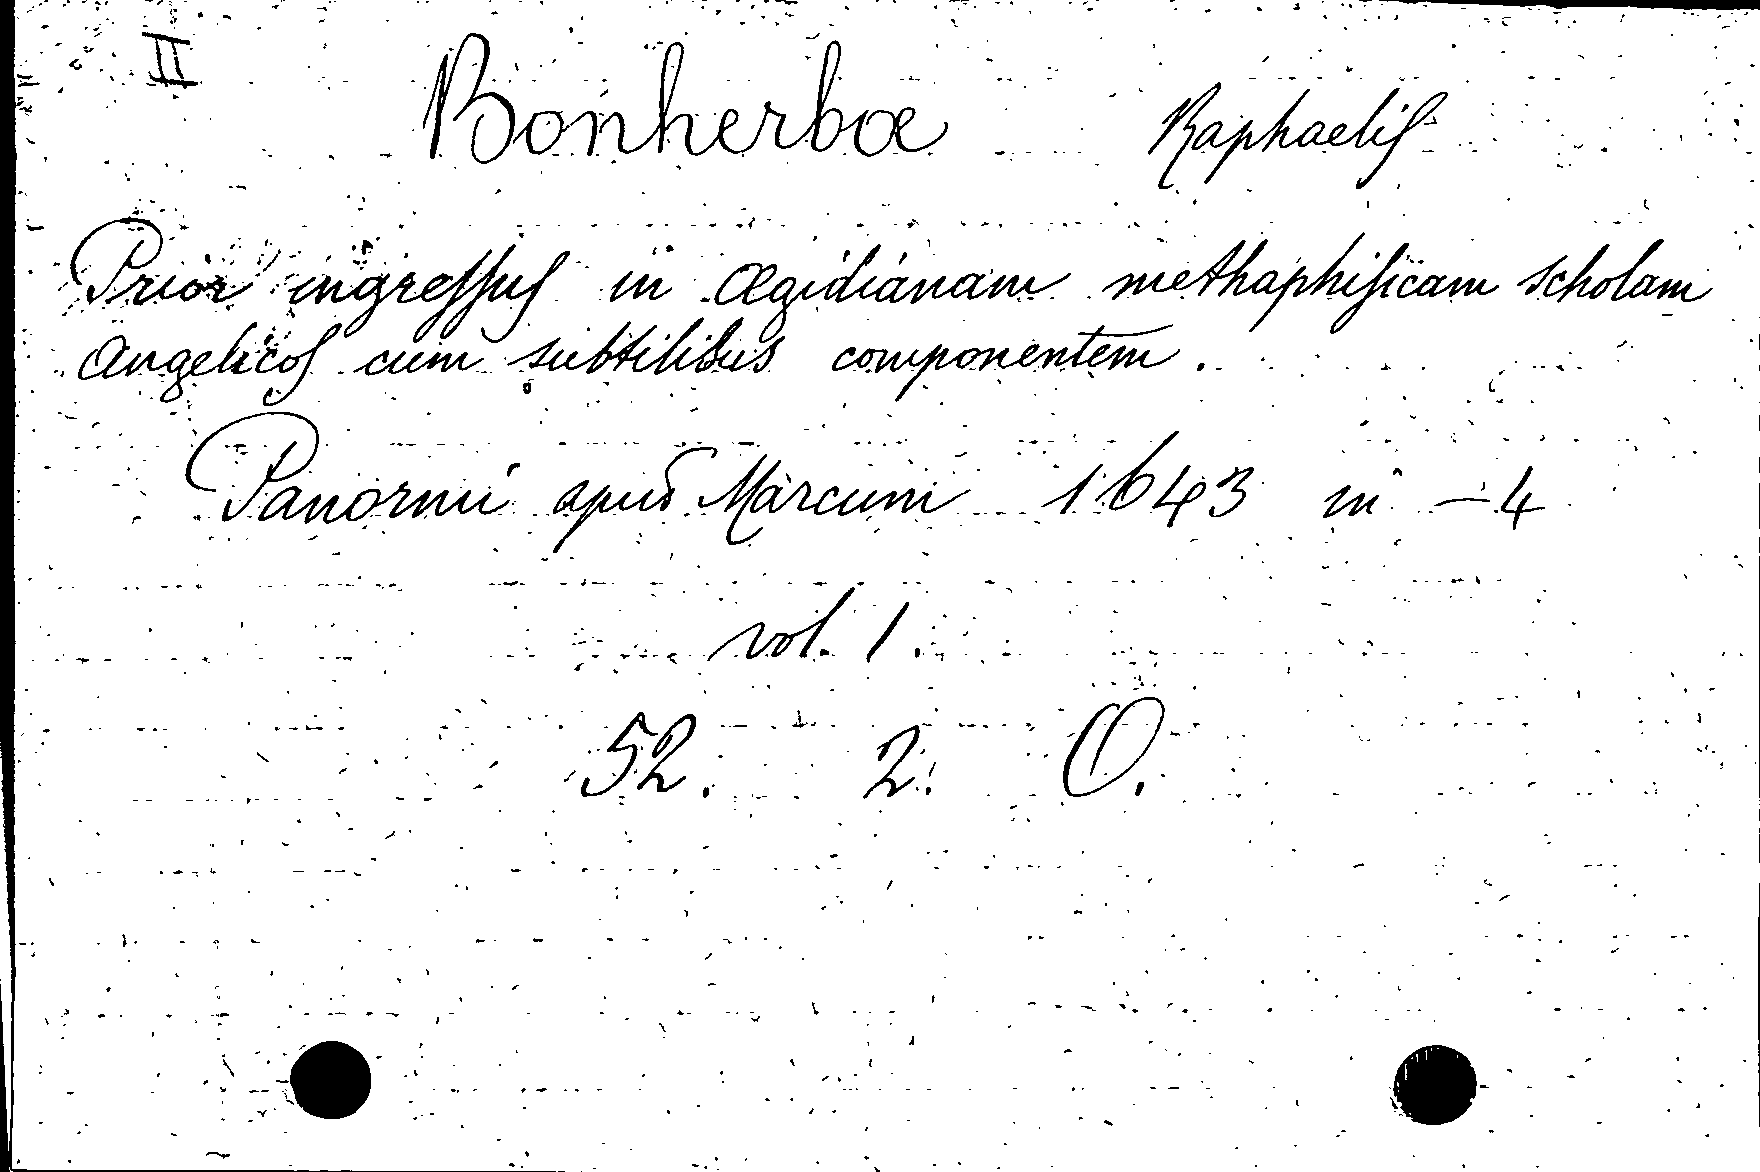 II
Bonherbæ Raphaelis
Prior ingressus in Ægidianam methaphisicam scholam
Angelicos cum subtilibus componentem.
Panormi apud Marcum 1643 in -4
vol. 1.
52. 2. O.